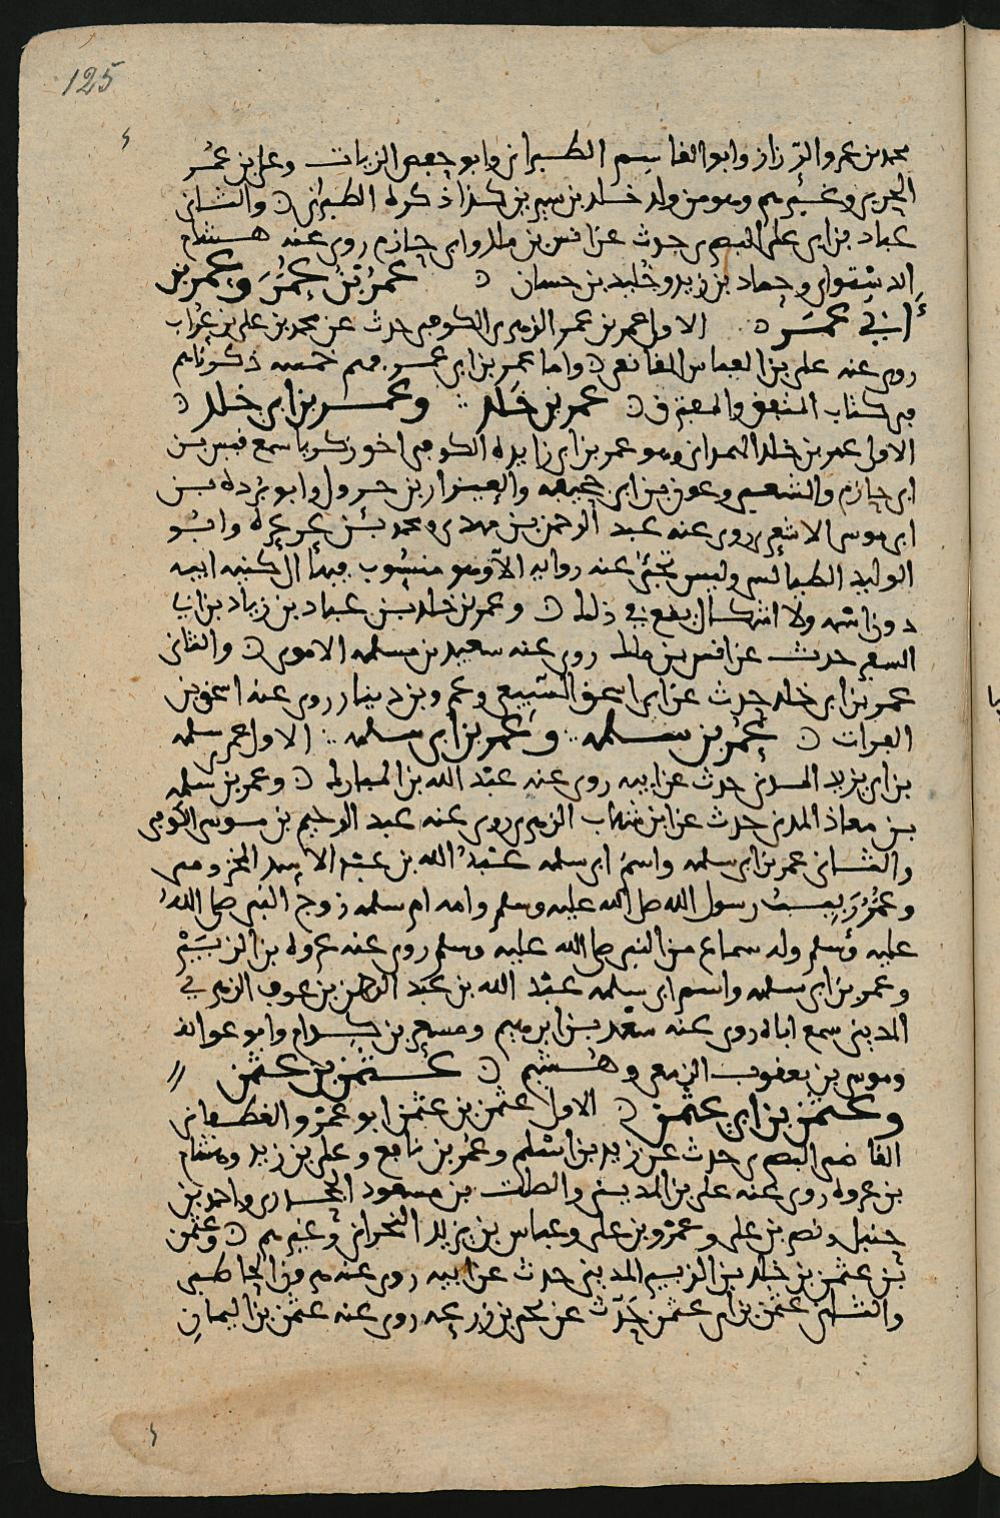 125
محمد بن عمرو الرزاز وابو القاسم الطبراني وابو حفص الزيات وعلي بن عمر
الحربي وغيرهم وهو من ولد خلد بن سيرين كذا ذكره الطبراني والثاني
عباد بن ابي علي البصري حدث عن انس بن ملك وابي حازم روى عنه هشام
الدستوائي وحماد بن زيد وخليد بن حسان عمر بن عمر وعمر بن
أبي عمر الاول عمر بن عمر الزهري الكوفي حدث عن محمد بن علي بن غراب
روى عنه علي بن العباس المقانعي واما عمر بن ابي عمر فهم خمسه ذكرناهم
في كتاب المتفق والمفترق عمر بن خلد وعمر بن ابي خلد
الاول عمر بن خلد الهمداني وهو عمر بن ابي زايده الكوفي اخو زكريا سمع قيس بن
ابي حازم والشعبي وعون بن ابي جحيفه والعيزار بن حريث وابو برده بن
ابي موسى الاشعري روى عنه عبد الرحمن بن مهدي ومحمد بن عرعره وابو
الوليد الطيالسي وليس تجئ عنه روايه الا وهو منسوب فيها الى كنيه ابيه
دون اسمه ولا اشكال يقع في ذلك وعمر بن خلد بن عباد بن زياد بن ابي
السفر حدث عن انس بن ملك روى عنه سعيد بن مسلمه الاموي والثاني
عمر بن ابي خلد حدث عن ابي اسحق السبيعي وعمرو بن دينار روى عنه اسحق بن
الفرات عمر بن سلمه وعمر بن ابي سلمه الاول عمر بن سلمه
بن ابي يزيد المدني حدث عن ابيه روى عنه عبد الله بن المبارك وعمر بن سلمه
بن معاذ المدني حدث عن ابن شهاب الزهري روى عنه عبد الرحيم بن موسى الكوفي
والثاني عمر بن ابي سلمه واسم ابي سلمه عبد الله بن عبد الاسد المخزومي
وعمر ربيب رسول الله صلى الله عليه وسلم وامه ام سلمه زوج النبي صلى الله
عليه وسلم وله سماع من النبي صلى الله عليه وسلم روى عنه عروه بن الزبير
وعمر بن ابي سلمه واسم ابي سلمه عبد الله بن عبد الرحمن بن عوف الزهري
المديني سمع اباه روى عنه سعد بن ابرهيم ومسعر بن كدام وابو عوانه
وموسى بن يعقوب الزمعي وهشيم عثمن بن عثمن
وعثمن بن ابي عثمن الاول عثمن بن عثمن ابو عمرو الغطفاني
القاضي البصري حدث عن زيد بن اسلم وعمر بن نافع وعلي بن زيد وهشام
بن عروه روى عنه علي بن المديني والصلت بن مسعود الجحدري واحمد بن
حنبل ونصر بن علي وعمرو بن علي وعباس بن يزيد البحراني وغيرهم وعثمن
بن عثمن بن خلد بن الزبير المديني حدث عن ابيه روى عنه هرون الحاطبي
والثاني عثمن بن ابي عثمن حدث عن عمر بن زرعه روى عنه عثمن بن اليمان